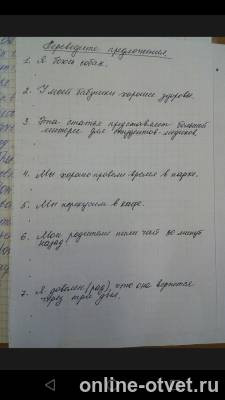 Переведите предложения
1. Я боюсь собак.
2. У моей бабушки хорошее здоровье.
3. Эта статья представляет большой
интерес для студентов-медиков.
4. Мы хорошо провели время в парке.
5. Мы перекусим в кафе.
6. Мои родители пили чай 10 минут
назад.
7. Я доволен (рад), что она вернётся
через три дня.
online-otvet.ru